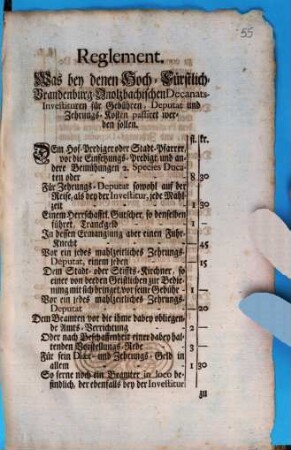 55
Reglement.
Was bey denen Hoch-Fürstlich-
Brandenburg-Onolzbachischen Decanats-
Investituren für Gebühren, Deputat und
Zehrungs-Kosten passiret wer-
den sollen.
fl. kr.
DEm Hof-Prediger oder Stadt-Pfarrer,
vor die Einsetzungs-Predigt und an-
dere Bemühungen 2. Species Duca-
ten oder - 8 30
Für Zehrungs-Deputat sowohl auf der
Reise, als bey der Investitur, jede Mahl-
zeit 1 30
Einem Herrschafftl. Gutscher, so denselben
führet, Tranckgeld 1 —
In dessen Ermanglung aber einen Fuhr-
Knecht — 45
Vor ein jedes mahlzeitliches Zehrungs-
Deputat, einem jeden — 15
Dem Stadt- oder Stiffts-Kirchner, so
einer von beeden Geistlichen zur Bedie-
nung mit sich bringet, vor seine Gebühr - 1 —
Vor ein jedes mahlzeitliches Zehrungs-
Deputat — 20
Dem Beamten vor die ihme dabey obliegen-
de Amts-Verrichtung - 2 —
Oder nach Beschaffenheit einer dabey hal-
tenden Vorstellungs-Rede - 3 —
Für sein Diät- und Zehrungs-Geld in
allem 1 30
So ferne noch ein Beamter in loco be-
findlich, der ebenfalls bey der Investitur
zu